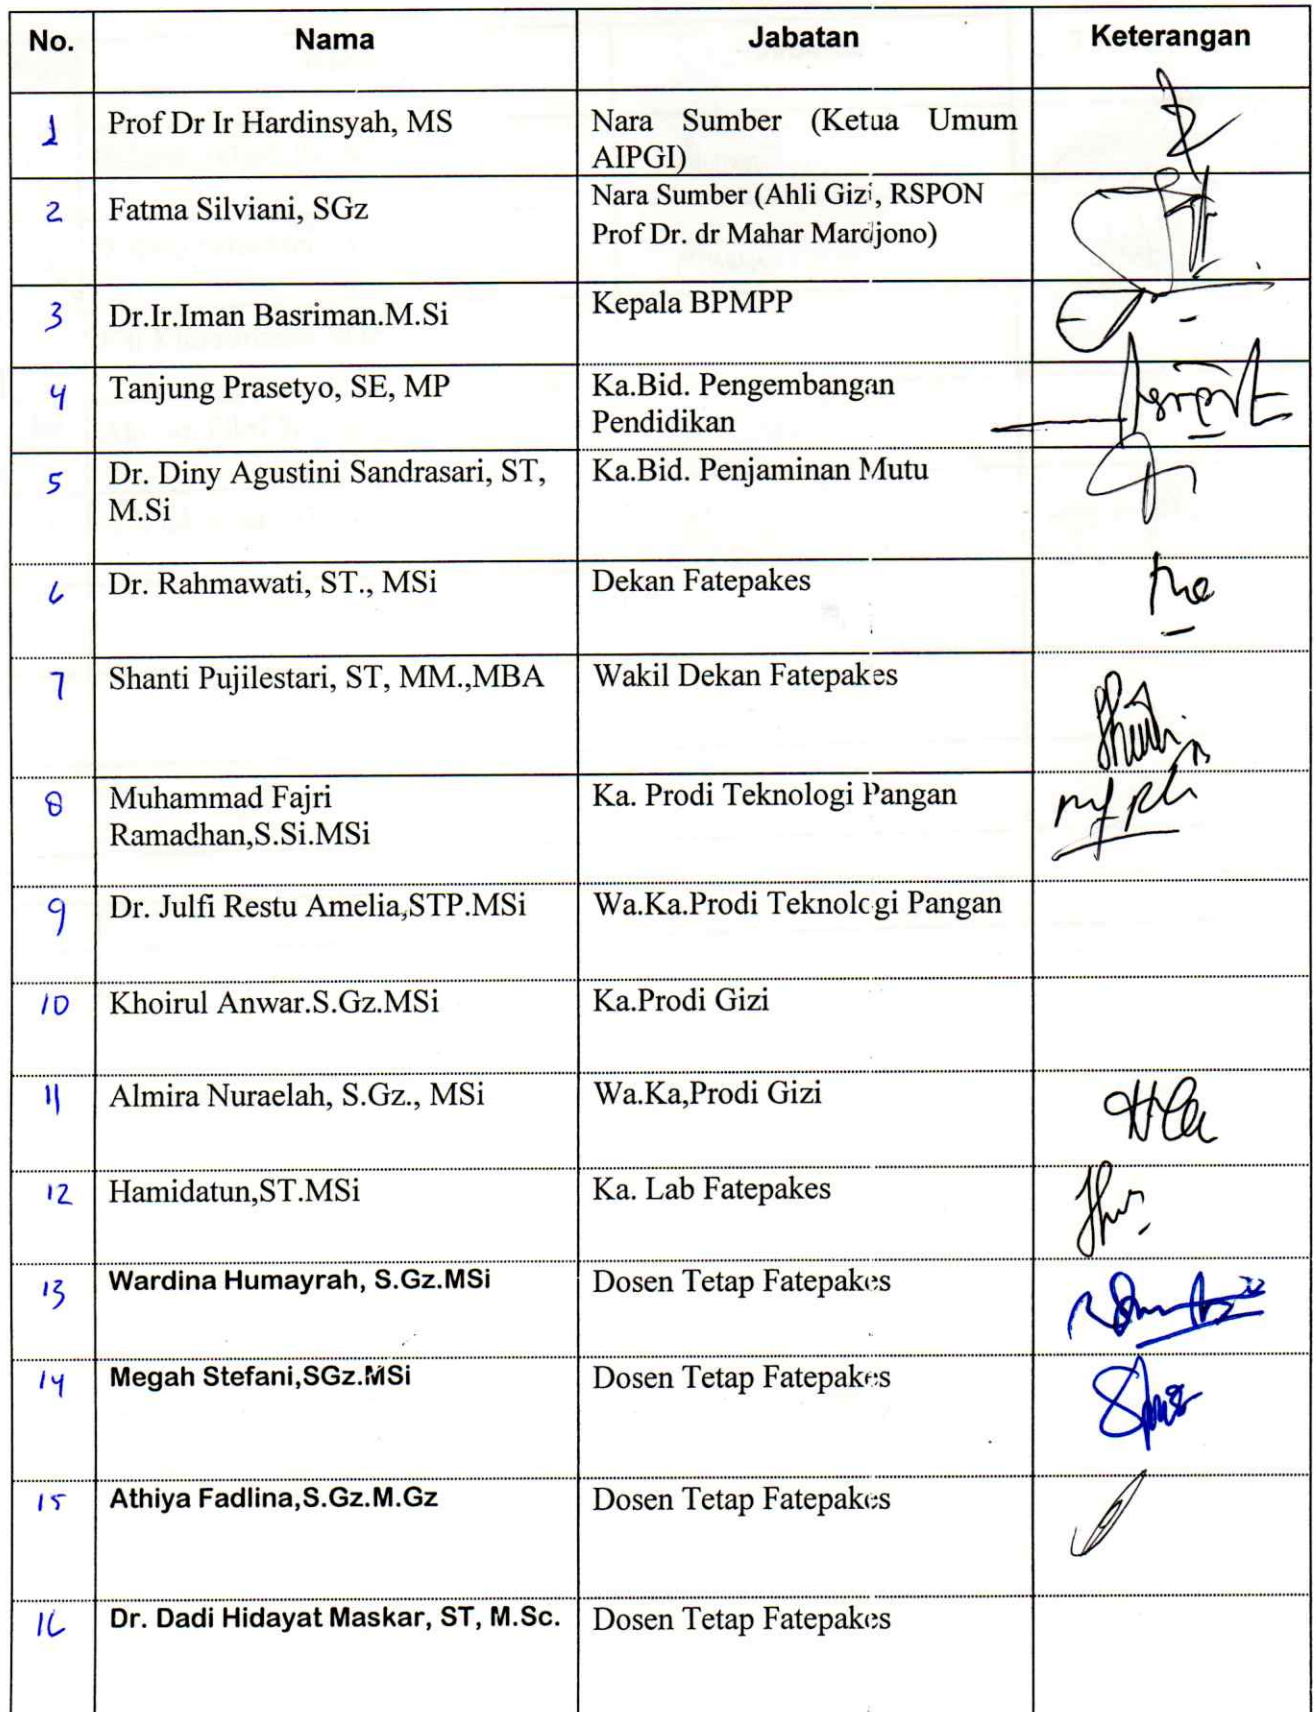 No. Nama Jabatan Keterangan
1 Prof Dr Ir Hardinsyah, MS Nara Sumber (Ketua Umum
AIPGI)
2 Fatma Silviani, SGz Nara Sumber (Ahli Gizi, RSPON
Prof Dr. dr Mahar Mardjono)
3 Dr.Ir.Iman Basriman.M.Si Kepala BPMPP
4 Tanjung Prasetyo, SE, MP Ka.Bid. Pengembangan
Pendidikan
5 Dr. Diny Agustini Sandrasari, ST, Ka.Bid. Penjaminan Mutu
M.Si
6 Dr. Rahmawati, ST., MSi Dekan Fatepakes
7 Shanti Pujilestari, ST, MM.,MBA Wakil Dekan Fatepakes
8 Muhammad Fajri Ka. Prodi Teknologi Pangan
Ramadhan,S.Si.MSi
9 Dr. Julfi Restu Amelia,STP.MSi Wa.Ka.Prodi Teknologi Pangan
10 Khoirul Anwar.S.Gz.MSi Ka.Prodi Gizi
11 Almira Nuraelah, S.Gz., MSi Wa.Ka,Prodi Gizi
12 Hamidatun,ST.MSi Ka. Lab Fatepakes
13 Wardina Humayrah, S.Gz.MSi Dosen Tetap Fatepakes
14 Megah Stefani,SGz.MSi Dosen Tetap Fatepakes
15 Athiya Fadlina,S.Gz.M.Gz Dosen Tetap Fatepakes
16 Dr. Dadi Hidayat Maskar, ST, M.Sc. Dosen Tetap Fatepakes